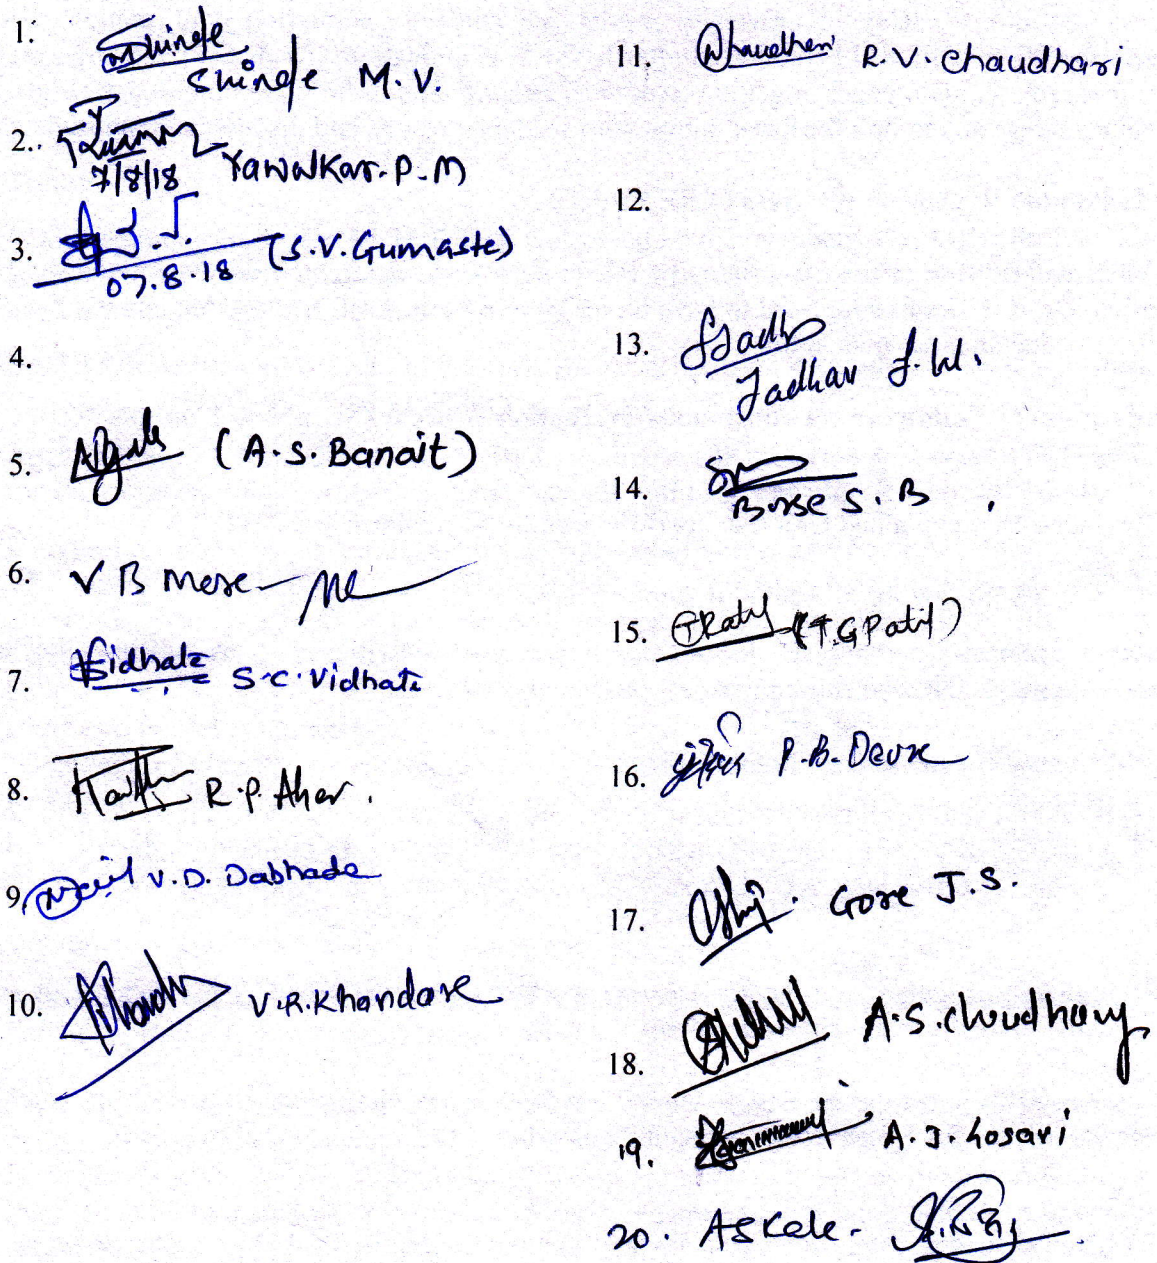 1. Shinde
Shinde M.V.
2.
7/8/18 Yawalkar.P.M
3. (S.V.Gumaste)
07.8.18
4.
5. (A.S.Banait)
6. V B More
7. Vidhate S.C.Vidhate
8. R.P.Aher.
9. V.D. Dabhade
10. V.R.Khandare
11. Chaudhari R.V.Chaudhari
12.
13.
Jadhav
14.
Borse S.B
15. (T.G Patil)
16. P.B.Deore
17. Gore J.S.
18. A.S.Choudhary
19.
20. A S Kale-